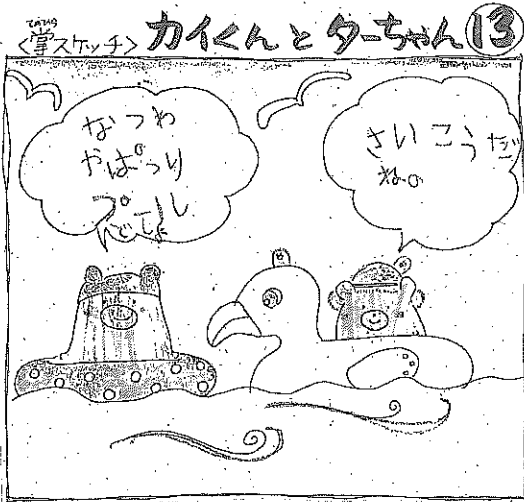 てのひら
<掌スケッチ> カイくんとターちゃん⑬
なつわ
やぱっり
プール
でしょ
さいこうだ
ね。